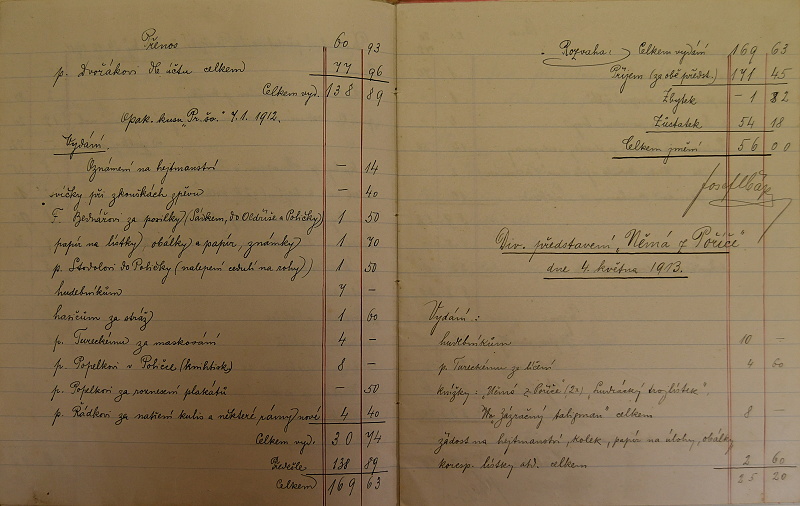 Přenos 60 93
p. Dvořákovi dle účtu celkem 77 96
Celkem vyd. 138 89
Opak. kusu „Pr. sv." 7.1. 1912.
Vydání:
Oznámení na hejtmanství — 14
svíčky při zkouškách zpěvu — 40
F. Bednářovi za posílky 1 50
papír na lístky, obálky a papír, známky) 1 70
p. Stodolovi do Poličky (nalepení cedulí na rohy) 1 50
hudebníkům 7 —
hasičům za stráž) 1 60
p. Tureckému za maskování 4 —
p. Popelkovi v Poličce 8 —
p. Popelkovi za roznesení plakátů — 50
p. Rádkovi za natření kulis a některé rámy nové 4 40
Celkem vyd. 30 74
138 89
Celkem 169 63
Rozvaha: Celkem vydání 169 63
Příjem (za obě předst.) 171 45
Zbytek — 1 82
Zůstatek 54 18
Celkem jmění 56 00
Div. představení „Němá z Poříče".
dne 4. května 1913.
Vydání:
hudebníkům 10 —
p. Tureckému za líčení 4 60
knížky: „Němá z Poříče" (2x) „Lumpácký trojlístek".
„Zázračný talisman" celkem 8 —
žádost na hejtmanství, kolek, papír na úlohy, obálky
koresp. lístky atd. celkem 2 60
25 20